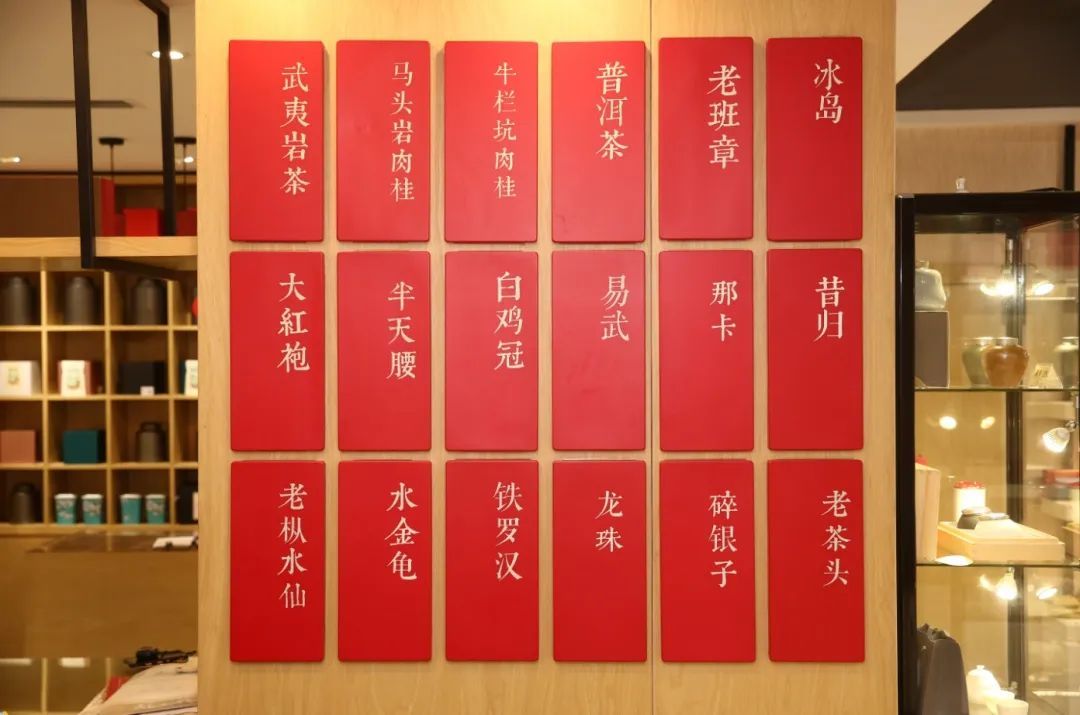 武夷岩茶
马头岩肉桂
牛栏坑肉桂
普洱茶
老班章
冰岛
大紅袍
半天腰
白鸡冠
易武
那卡
昔归
老枞水仙
水金龟
铁罗汉
龙珠
碎银子
老茶头